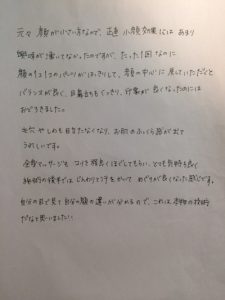 元々 顔が小さい方なので、正直 小顔効果にはあまり
興味が湧いてなかったのですが、たった1回なのに
顔の1つ1つのパーツがはっきりして、顔の中心に戻していただくと
バランスが良く、目鼻立ちもくっきり、印象が良くなったのには
おどろきました。
毛穴やしわも目立たなくなり、お肌のふっくら感が出て
うれしいです。
全身マッサージも コリを程良くほぐしてもらい、とても気持ち良く
施術の後半では じんわりと汗をかいて めぐりが良くなった感じです。
自分の目で見て 自分の顔の違いが分かるので、これは 本物の技術
だなと思いました!!